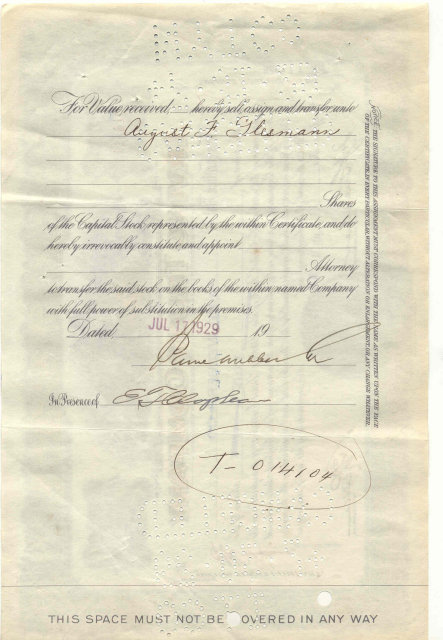 For Value received, hereby sell, assign, and transfer unto
August F.
Shares
of the Capital Stock represented by the within Certificate, and do
hereby irrevocably constitute and appoint
Attorney
to transfer the said stock on the books of the within named Company
with full power of substitution in the premises.
Dated, JUL 17 1929 19
In Presence of
T- 014104
NOTICE. THE SIGNATURE TO THIS ASSIGNMENT MUST CORRESPOND WITH THE NAME AS WRITTEN UPON THE FACE
OF THE CERTIFICATE, IN EVERY PARTICULAR, WITHOUT ALTERATION OR ENLARGEMENT OR ANY CHANGE WHATEVER.
THIS SPACE MUST NOT BE OVERED IN ANY WAY